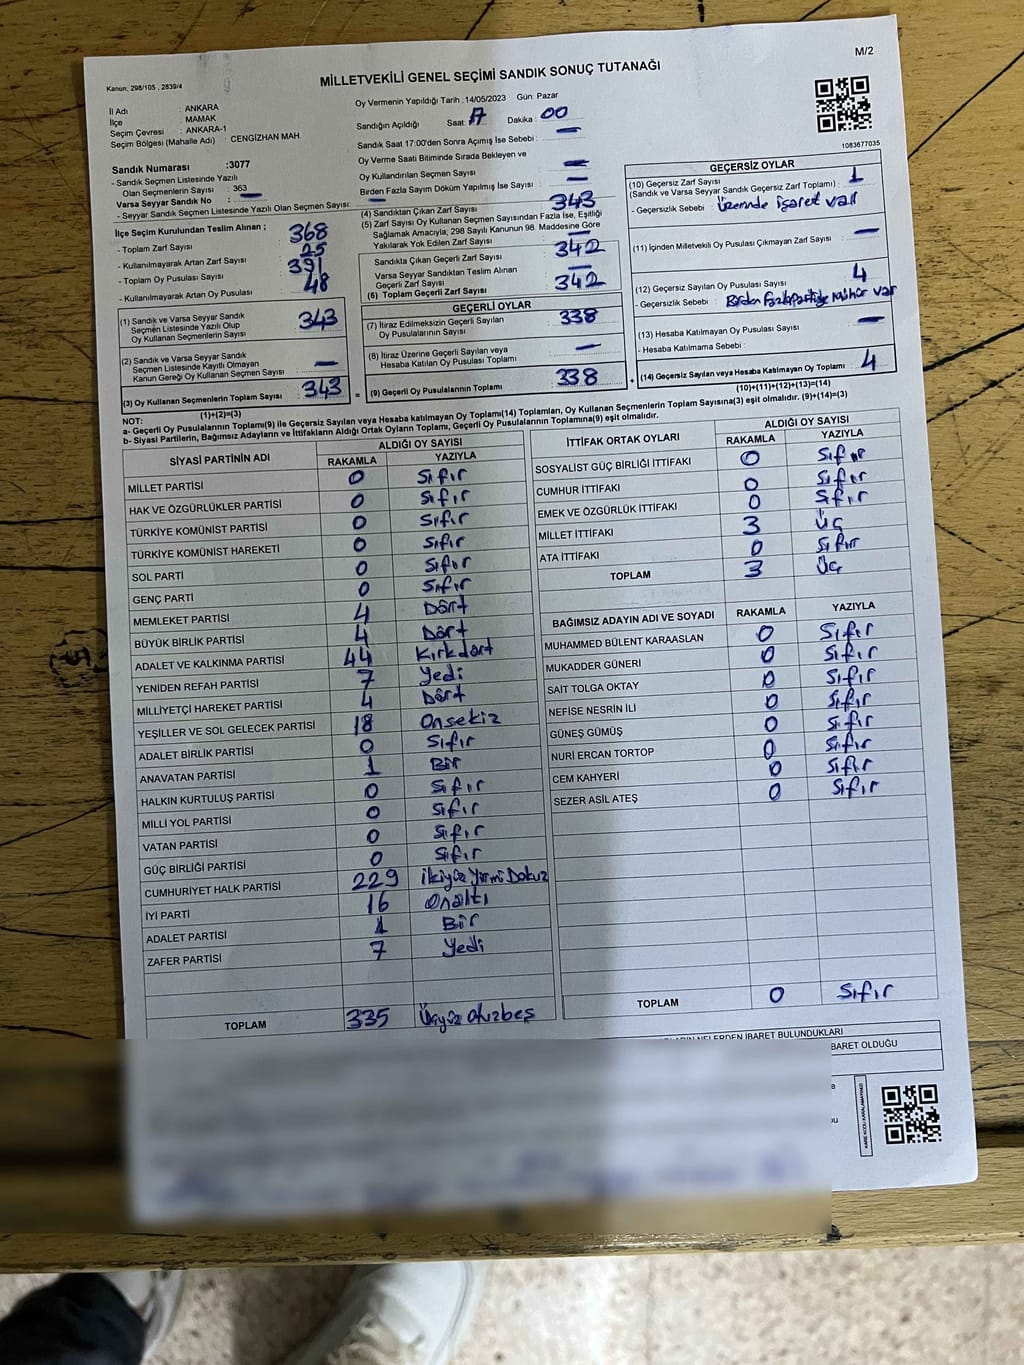 M/2
Kanun, 298/105 , 2839/4
MİLLETVEKİLİ GENEL SEÇİMİ SANDIK SONUÇ TUTANAĞI
İl Adı : ANKARA
İlçe : MAMAK
Seçim Çevresi : ANKARA-1
Seçim Bölgesi (Mahalle Adı) : CENGİZHAN MAH.
Sandık Numarası :3077
- Sandık Seçmen Listesinde Yazılı
Olan Seçmenlerin Sayısı : 363
Varsa Seyyar Sandık No : —
- Seyyar Sandık Seçmen Listesinde Yazılı Olan Seçmen Sayısı: —
Oy Vermenin Yapıldığı Tarih :14/05/2023 Gün: Pazar
Sandığın Açıldığı Saat: 17 Dakika : 00
Sandık Saat 17:00'den Sonra Açımış İse Sebebi : —
Oy Verme Saati Bitiminde Sırada Bekleyen ve
Oy Kullandırılan Seçmen Sayısı : —
Birden Fazla Sayım Döküm Yapılmış İse Sayısı : —
1083677035
İlçe Seçim Kurulundan Teslim Alınan ;
- Toplam Zarf Sayısı : 368
- Kullanılmayarak Artan Zarf Sayısı : 25
- Toplam Oy Pusulası Sayısı : 391
- Kullanılmayarak Artan Oy Pusulası : 48
(1) Sandık ve Varsa Seyyar Sandık
Seçmen Listesinde Yazılı Olup
Oy Kullanan Seçmenlerin Sayısı : 343
(2) Sandık ve Varsa Seyyar Sandık
Seçmen Listesinde Kayıtlı Olmayan
Kanun Gereği Oy Kullanan Seçmen Sayısı : —
(3) Oy Kullanan Seçmenlerin Toplam Sayısı : 343
(1)+(2)=(3)
(4) Sandıktan Çıkan Zarf Sayısı : 343
(5) Zarf Sayısı Oy Kullanan Seçmen Sayısından Fazla İse, Eşitliği
Sağlamak Amacıyla; 298 Sayılı Kanunun 98. Maddesine Göre
Yakılarak Yok Edilen Zarf Sayısı : —
Sandıkta Çıkan Geçerli Zarf Sayısı : 342
Varsa Seyyar Sandıktan Teslim Alınan
Geçerli Zarf Sayısı : —
(6) Toplam Geçerli Zarf Sayısı : 342
GEÇERLİ OYLAR
(7) İtiraz Edilmeksizin Geçerli Sayılan
Oy Pusulalarının Sayısı : 338
(8) İtiraz Üzerine Geçerli Sayılan veya
Hesaba Katılan Oy Pusulası Toplamı : —
= (9) Geçerli Oy Pusulalarının Toplamı : 338
GEÇERSİZ OYLAR
(10) Geçersiz Zarf Sayısı : 1
(Sandık ve Varsa Seyyar Sandık Geçersiz Zarf Toplamı)
- Geçersizlik Sebebi : Üzerinde işaret var
(11) İçinden Milletvekili Oy Pusulası Çıkmayan Zarf Sayısı : —
(12) Geçersiz Sayılan Oy Pusulası Sayısı : 4
- Geçersizlik Sebebi : Birden fazla partiye mühür var
(13) Hesaba Katılmayan Oy Pusulası Sayısı : —
- Hesaba Katılmama Sebebi :
+ (14) Geçersiz Sayılan veya Hesaba Katılmayan Oy Toplamı : 4
(10)+(11)+(12)+(13)=(14)
NOT:
a- Geçerli Oy Pusulalarının Toplamı(9) ile Geçersiz Sayılan veya Hesaba katılmayan Oy Toplamı(14) Toplamları, Oy Kullanan Seçmenlerin Toplam Sayısına(3) eşit olmalıdır. (9)+(14)=(3)
b- Siyasi Partilerin, Bağımsız Adayların ve İttifakların Aldığı Ortak Oyların Toplamı, Geçerli Oy Pusulalarının Toplamına(9) eşit olmalıdır.
SİYASİ PARTİNİN ADI ALDIĞI OY SAYISI
RAKAMLA YAZIYLA
MİLLET PARTİSİ 0 Sıfır
HAK VE ÖZGÜRLÜKLER PARTİSİ 0 Sıfır
TÜRKİYE KOMÜNİST PARTİSİ 0 Sıfır
TÜRKİYE KOMÜNİST HAREKETİ 0 Sıfır
SOL PARTİ 0 Sıfır
GENÇ PARTİ 0 Sıfır
MEMLEKET PARTİSİ 4 Dört
BÜYÜK BİRLİK PARTİSİ 4 Dört
ADALET VE KALKINMA PARTİSİ 44 Kırkdört
YENİDEN REFAH PARTİSİ 7 Yedi
MİLLİYETÇİ HAREKET PARTİSİ 4 Dört
YEŞİLLER VE SOL GELECEK PARTİSİ 18 Onsekiz
ADALET BİRLİK PARTİSİ 0 Sıfır
ANAVATAN PARTİSİ 1 Bir
HALKIN KURTULUŞ PARTİSİ 0 Sıfır
MİLLİ YOL PARTİSİ 0 Sıfır
VATAN PARTİSİ 0 Sıfır
GÜÇ BİRLİĞİ PARTİSİ 0 Sıfır
CUMHURİYET HALK PARTİSİ 229 İkiyüz Yirmi Dokuz
İYİ PARTİ 16 Onaltı
ADALET PARTİSİ 1 Bir
ZAFER PARTİSİ 7 Yedi
TOPLAM 335 Üçyüz otuzbeş
İTTİFAK ORTAK OYLARI ALDIĞI OY SAYISI
RAKAMLA YAZIYLA
SOSYALİST GÜÇ BİRLİĞİ İTTİFAKI 0 Sıfır
CUMHUR İTTİFAKI 0 Sıfır
EMEK VE ÖZGÜRLÜK İTTİFAKI 0 Sıfır
MİLLET İTTİFAKI 3 Üç
ATA İTTİFAKI 0 Sıfır
TOPLAM 3 Üç
BAĞIMSIZ ADAYIN ADI VE SOYADI RAKAMLA YAZIYLA
MUHAMMED BÜLENT KARAASLAN 0 Sıfır
MUKADDER GÜNERİ 0 Sıfır
SAİT TOLGA OKTAY 0 Sıfır
NEFİSE NESRİN İLİ 0 Sıfır
GÜNEŞ GÜMÜŞ 0 Sıfır
NURİ ERCAN TORTOP 0 Sıfır
CEM KAHYERİ 0 Sıfır
SEZER ASİL ATEŞ 0 Sıfır
TOPLAM 0 Sıfır
NELERDEN İBARET BULUNDUKLARI
BARET OLDUĞU